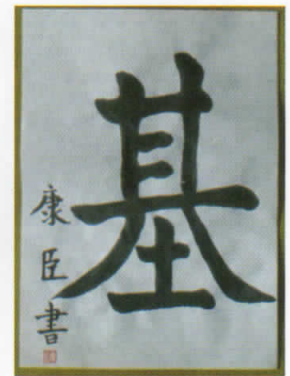 基
康臣書